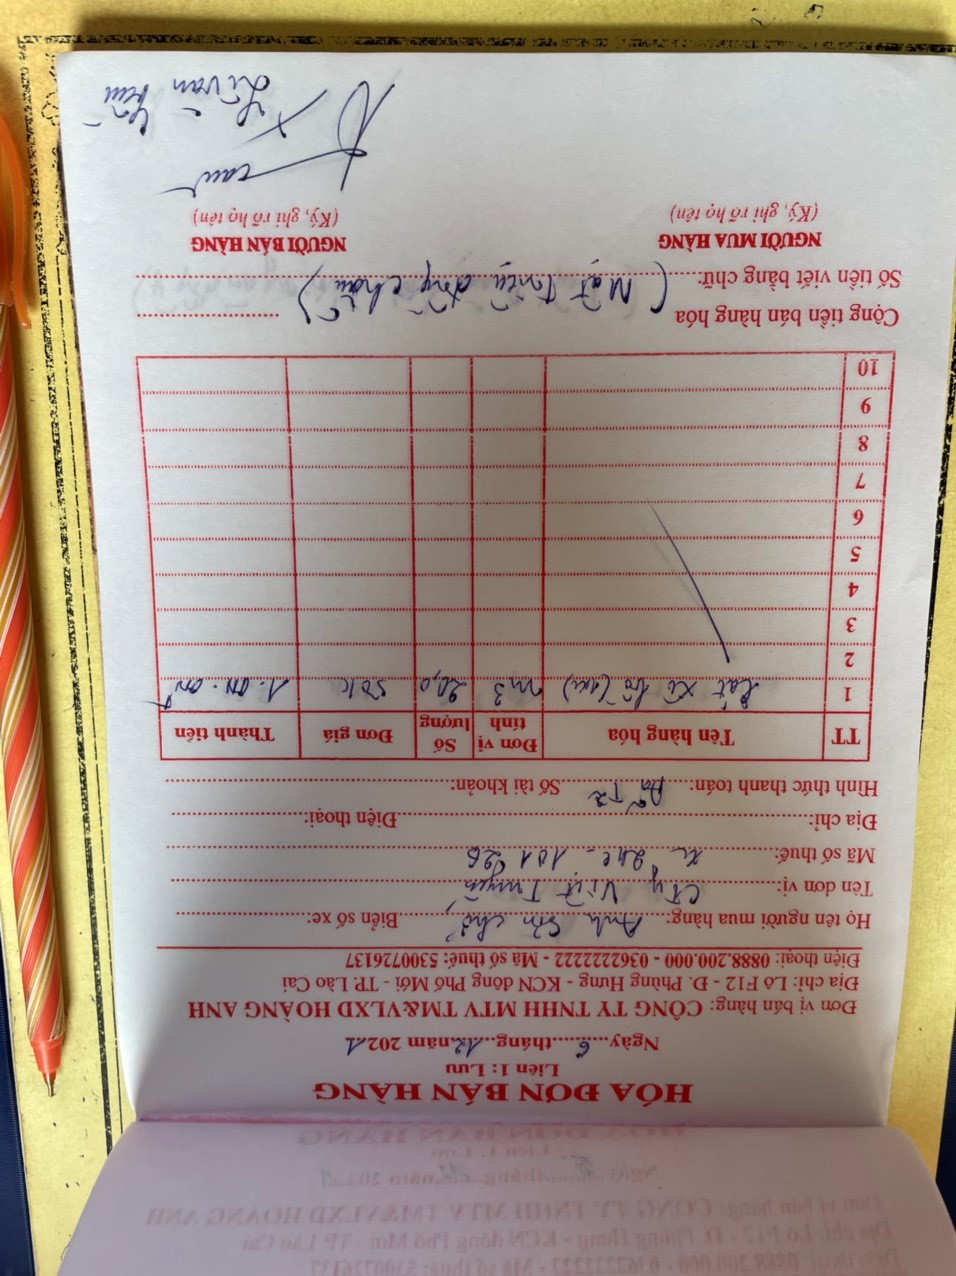 HÓA ĐƠN BÁN HÀNG
Liên 1: Lưu
Ngày 6 tháng 12 năm 2021
Đơn vị bán hàng: CÔNG TY TNHH MTV TM&VLXD HOÀNG ANH
Địa chỉ: Lô F12 - Đ. Phùng Hưng - KCN đông Phố Mới - TP Lào Cai
Điện thoại: 0888.200.000 - 0362222222 - Mã số thuế: 5300726137
Họ tên người mua hàng: Anh Sơn chở Biển số xe:
Tên đơn vị: CTy Việt Tuyến
Mã số thuế: 101 26
Địa chỉ: Điện thoại:
Hình thức thanh toán: Đã T2 Số tài khoản:
TT Tên hàng hóa Đơn vị tính Số lượng Đơn giá Thành tiền
1 Cát m3 20,0 50k
2
3
4
5
6
7
8
9
10
Cộng tiền bán hàng hóa
Số tiền viết bằng chữ: (Một triệu đồng chẵn)
NGƯỜI MUA HÀNG NGƯỜI BÁN HÀNG
(Ký, ghi rõ họ tên) (Ký, ghi rõ họ tên)